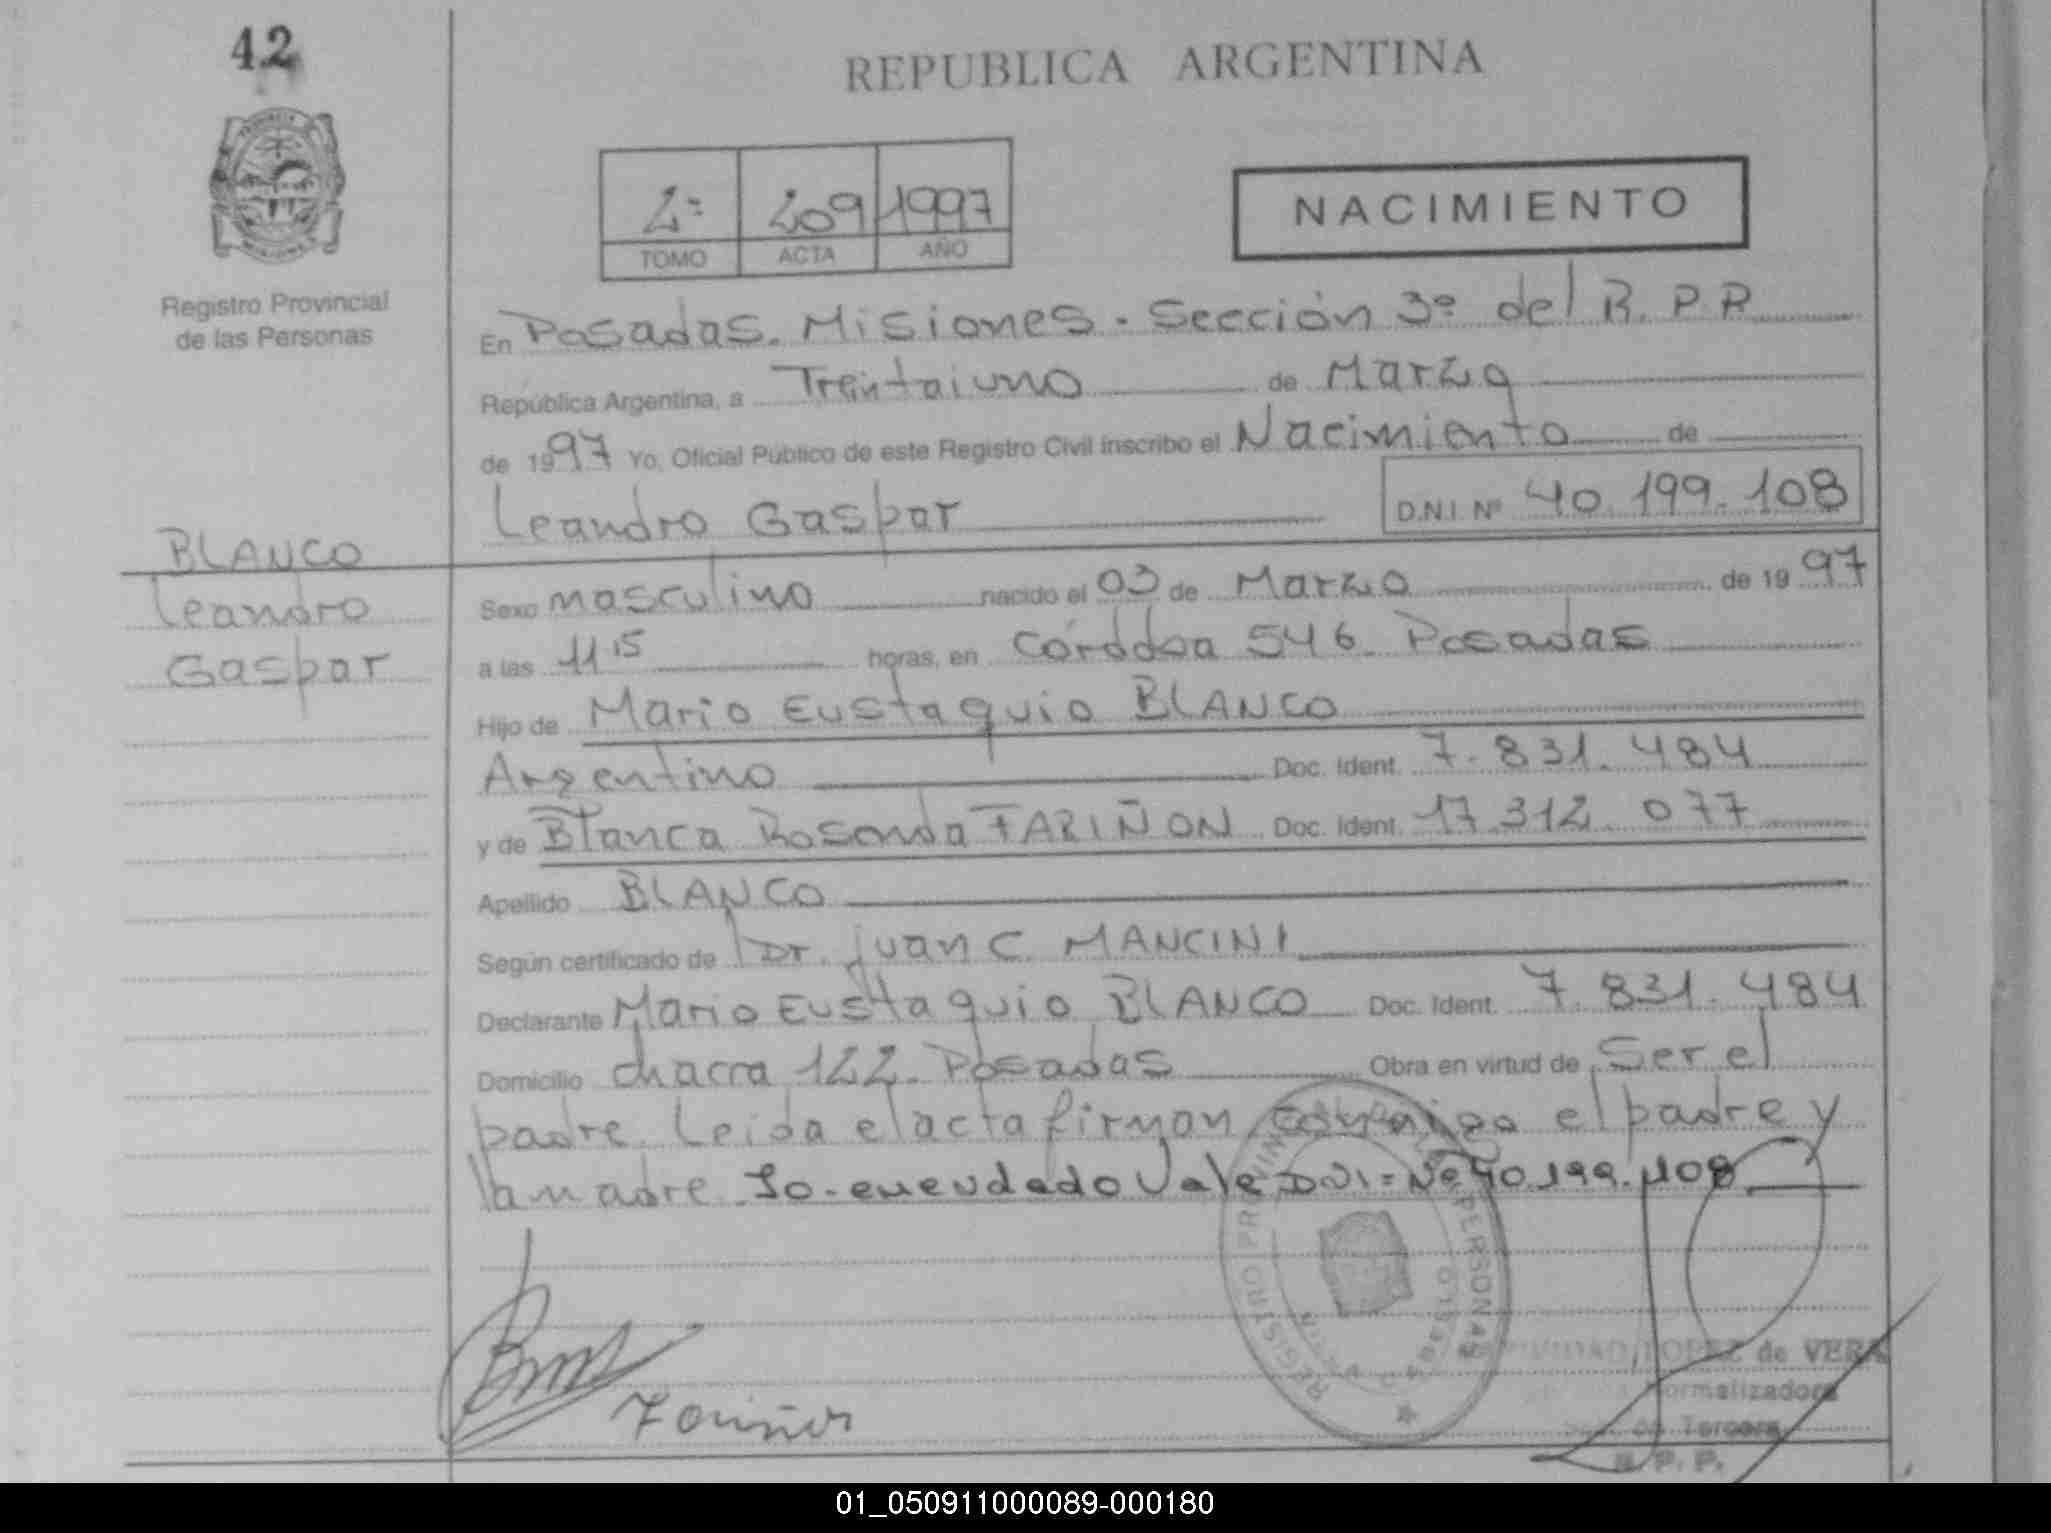 42
REPUBLICA ARGENTINA
2º 209 1997
TOMO ACTA AÑO
NACIMIENTO
Registro Provincial
de las Personas
En Posadas. Misiones. Sección 3º del R. P. P.
República Argentina, a Treintaiuno de Marzo
de 1997 Yo, Oficial Público de este Registro Civil inscribo el Nacimiento de
Leandro Gaspar D.N.I. Nº 40.199.108
BLANCO
Leandro
Gaspar
Sexo masculino nacido el 03 de Marzo de 1997
a las 11 15 horas, en Córdoba 546. Posadas
Hijo de Mario Eustaquio BLANCO
Argentino Doc. Ident. 7.831.484
y de Blanca Rosenda FARIÑON Doc. Ident. 17.312.077
Apellido BLANCO
Según certificado de Dr. Juan C. MANCINI
Declarante Mario Eustaquio BLANCO Doc. Ident. 7.831.484
Domicilio chacra 122. Posadas Obra en virtud de Ser el
padre. Leida el acta firman conmigo el padre y
la madre. So-enmendado Vale DNI=Nº 40.199.108
REGISTRO PROVINCIAL DE LAS PERSONAS
LOPEZ de VERA
Normalizadora
Tercera
R. P. P.
01_050911000089-000180